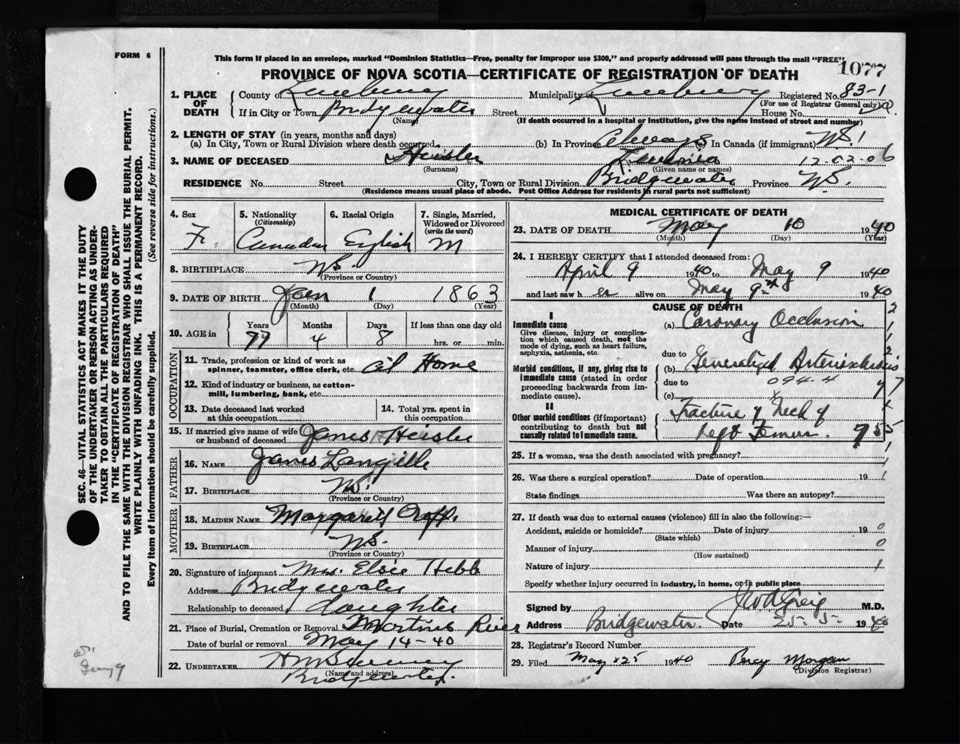 FORM 6
This form if placed in an envelope, marked "Dominion Statistics—Free, penalty for improper use $300," and properly addressed will pass through the mail "FREE"
1077
PROVINCE OF NOVA SCOTIA—CERTIFICATE OF REGISTRATION OF DEATH
1. PLACE OF DEATH
County of Lunenburg Municipality of Lunenburg Registered No. 83-1
(For use of Registrar General only)
If in City or Town Bridgewater Street House No.
(Name) (If death occurred in a hospital or institution, give the name instead of street and number)
2. LENGTH OF STAY (in years, months and days)
(a) In City, Town or Rural Division where death occurred (b) In Province Always In Canada (if immigrant) NS
3. NAME OF DECEASED Heisler 12-02-06
(Surname) (Given name or names)
RESIDENCE No. Street City, Town or Rural Division Bridgewater Province NS.
(Residence means usual place of abode. Post Office Address for residents in rural parts not sufficient)
SEC. 46—VITAL STATISTICS ACT MAKES IT THE DUTY
OF THE UNDERTAKER OR PERSON ACTING AS UNDER-
TAKER TO OBTAIN ALL THE PARTICULARS REQUIRED
IN THE "CERTIFICATE OF REGISTRATION OF DEATH"
AND TO FILE THE SAME WITH THE DIVISION REGISTRAR WHO SHALL ISSUE THE BURIAL PERMIT.
WRITE PLAINLY WITH UNFADING INK. THIS IS A PERMANENT RECORD.
Every item of Information should be carefully supplied. (See reverse side for instructions.)
4. Sex
F.
5. Nationality
(Citizenship)
Canadian
6. Racial Origin
English
7. Single, Married, Widowed or Divorced
(write the word)
M
8. BIRTHPLACE NS.
(Province or Country)
9. DATE OF BIRTH Jan 1 1863
(Month) (Day) (Year)
10. AGE in Years Months Days If less than one day old
77 4 8 hrs. or min.
OCCUPATION
11. Trade, profession or kind of work as
spinner, teamster, office clerk, etc. at Home
12. Kind of industry or business, as cotton-
mill, lumbering, bank, etc.
13. Date deceased last worked
at this occupation
14. Total yrs. spent in
this occupation
15. If married give name of wife
or husband of deceased James Heisler
FATHER
16. NAME James Langille
17. BIRTHPLACE NS.
(Province or Country)
MOTHER
18. MAIDEN NAME Margaret
19. BIRTHPLACE NS.
(Province or Country)
20. Signature of informant Mrs. Elsie Hebb
Address Bridgewater
Relationship to deceased daughter
21. Place of Burial, Cremation or Removal Martins River
Date of burial or removal May 14-40
22. UNDERTAKER
(Name and address)
Bridgewater.
MEDICAL CERTIFICATE OF DEATH
23. DATE OF DEATH May 10 1940
(Month) (Day) (Year)
24. I HEREBY CERTIFY that I attended deceased from:
April 9 1940 to May 9 1940
and last saw her alive on May 9th 1940
CAUSE OF DEATH
I
Immediate cause
Give disease, injury or complica-
tion which caused death, not the
mode of dying, such as heart failure,
asphyxia, asthenia, etc.
(a) Coronary Occlusion
due to
Morbid conditions, if any, giving rise to
immediate cause (stated in order
proceeding backwards from im-
mediate cause).
(b) Generalized Arteriosclerosis
due to 094-4
(c)
II
Other morbid conditions (if important)
contributing to death but not
causally related to immediate cause.
Fracture of Neck of
Left Femur.
25. If a woman, was the death associated with pregnancy?
26. Was there a surgical operation? Date of operation 19
State findings Was there an autopsy?
27. If death was due to external causes (violence) fill in also the following:—
Accident, suicide or homicide? Date of injury 19
(State which)
Manner of injury
(How sustained)
Nature of injury
Specify whether injury occurred in industry, in home, or in public place
Signed by M.D.
Address Bridgewater Date 25-5- 1940
28. Registrar's Record Number
29. Filed May 25 1940 Percy Morgan
(Division Registrar)